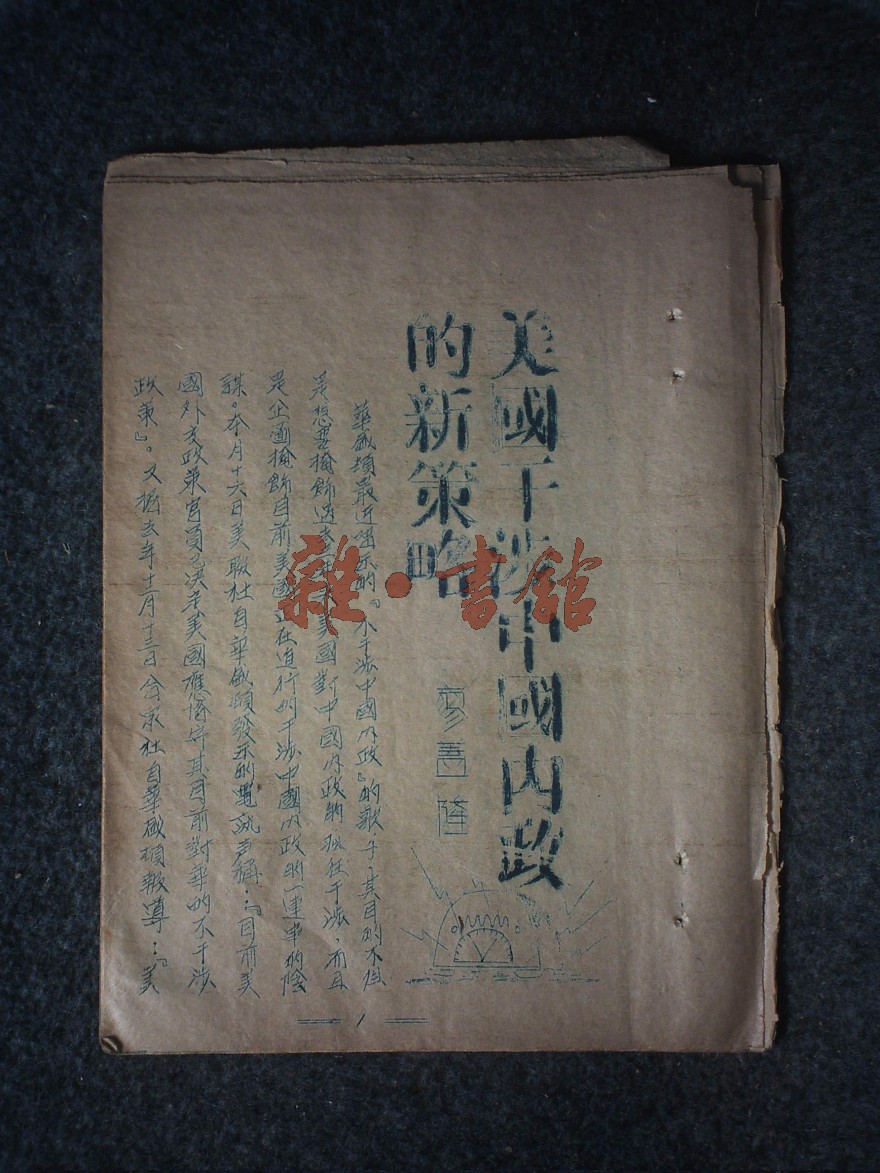 美國干涉中國內政
的新策略
廖盖隆
華盛頓最近唱的『不干涉中國內政』的歌子,其目的不但
是想要掩飾過去美國對中國內政的干涉,而且
是企圖掩飾目前美國正在進行的干涉中國內政的一連串的陰
謀。本月十六日美聯社自華盛頓發出的電訊稱:『目前美
國外交政策官員已決定美國應恪守其目前對華的不干涉
政策』。又據去年十二月十三日合眾社自華盛頓報導:『美
1
雜·書館